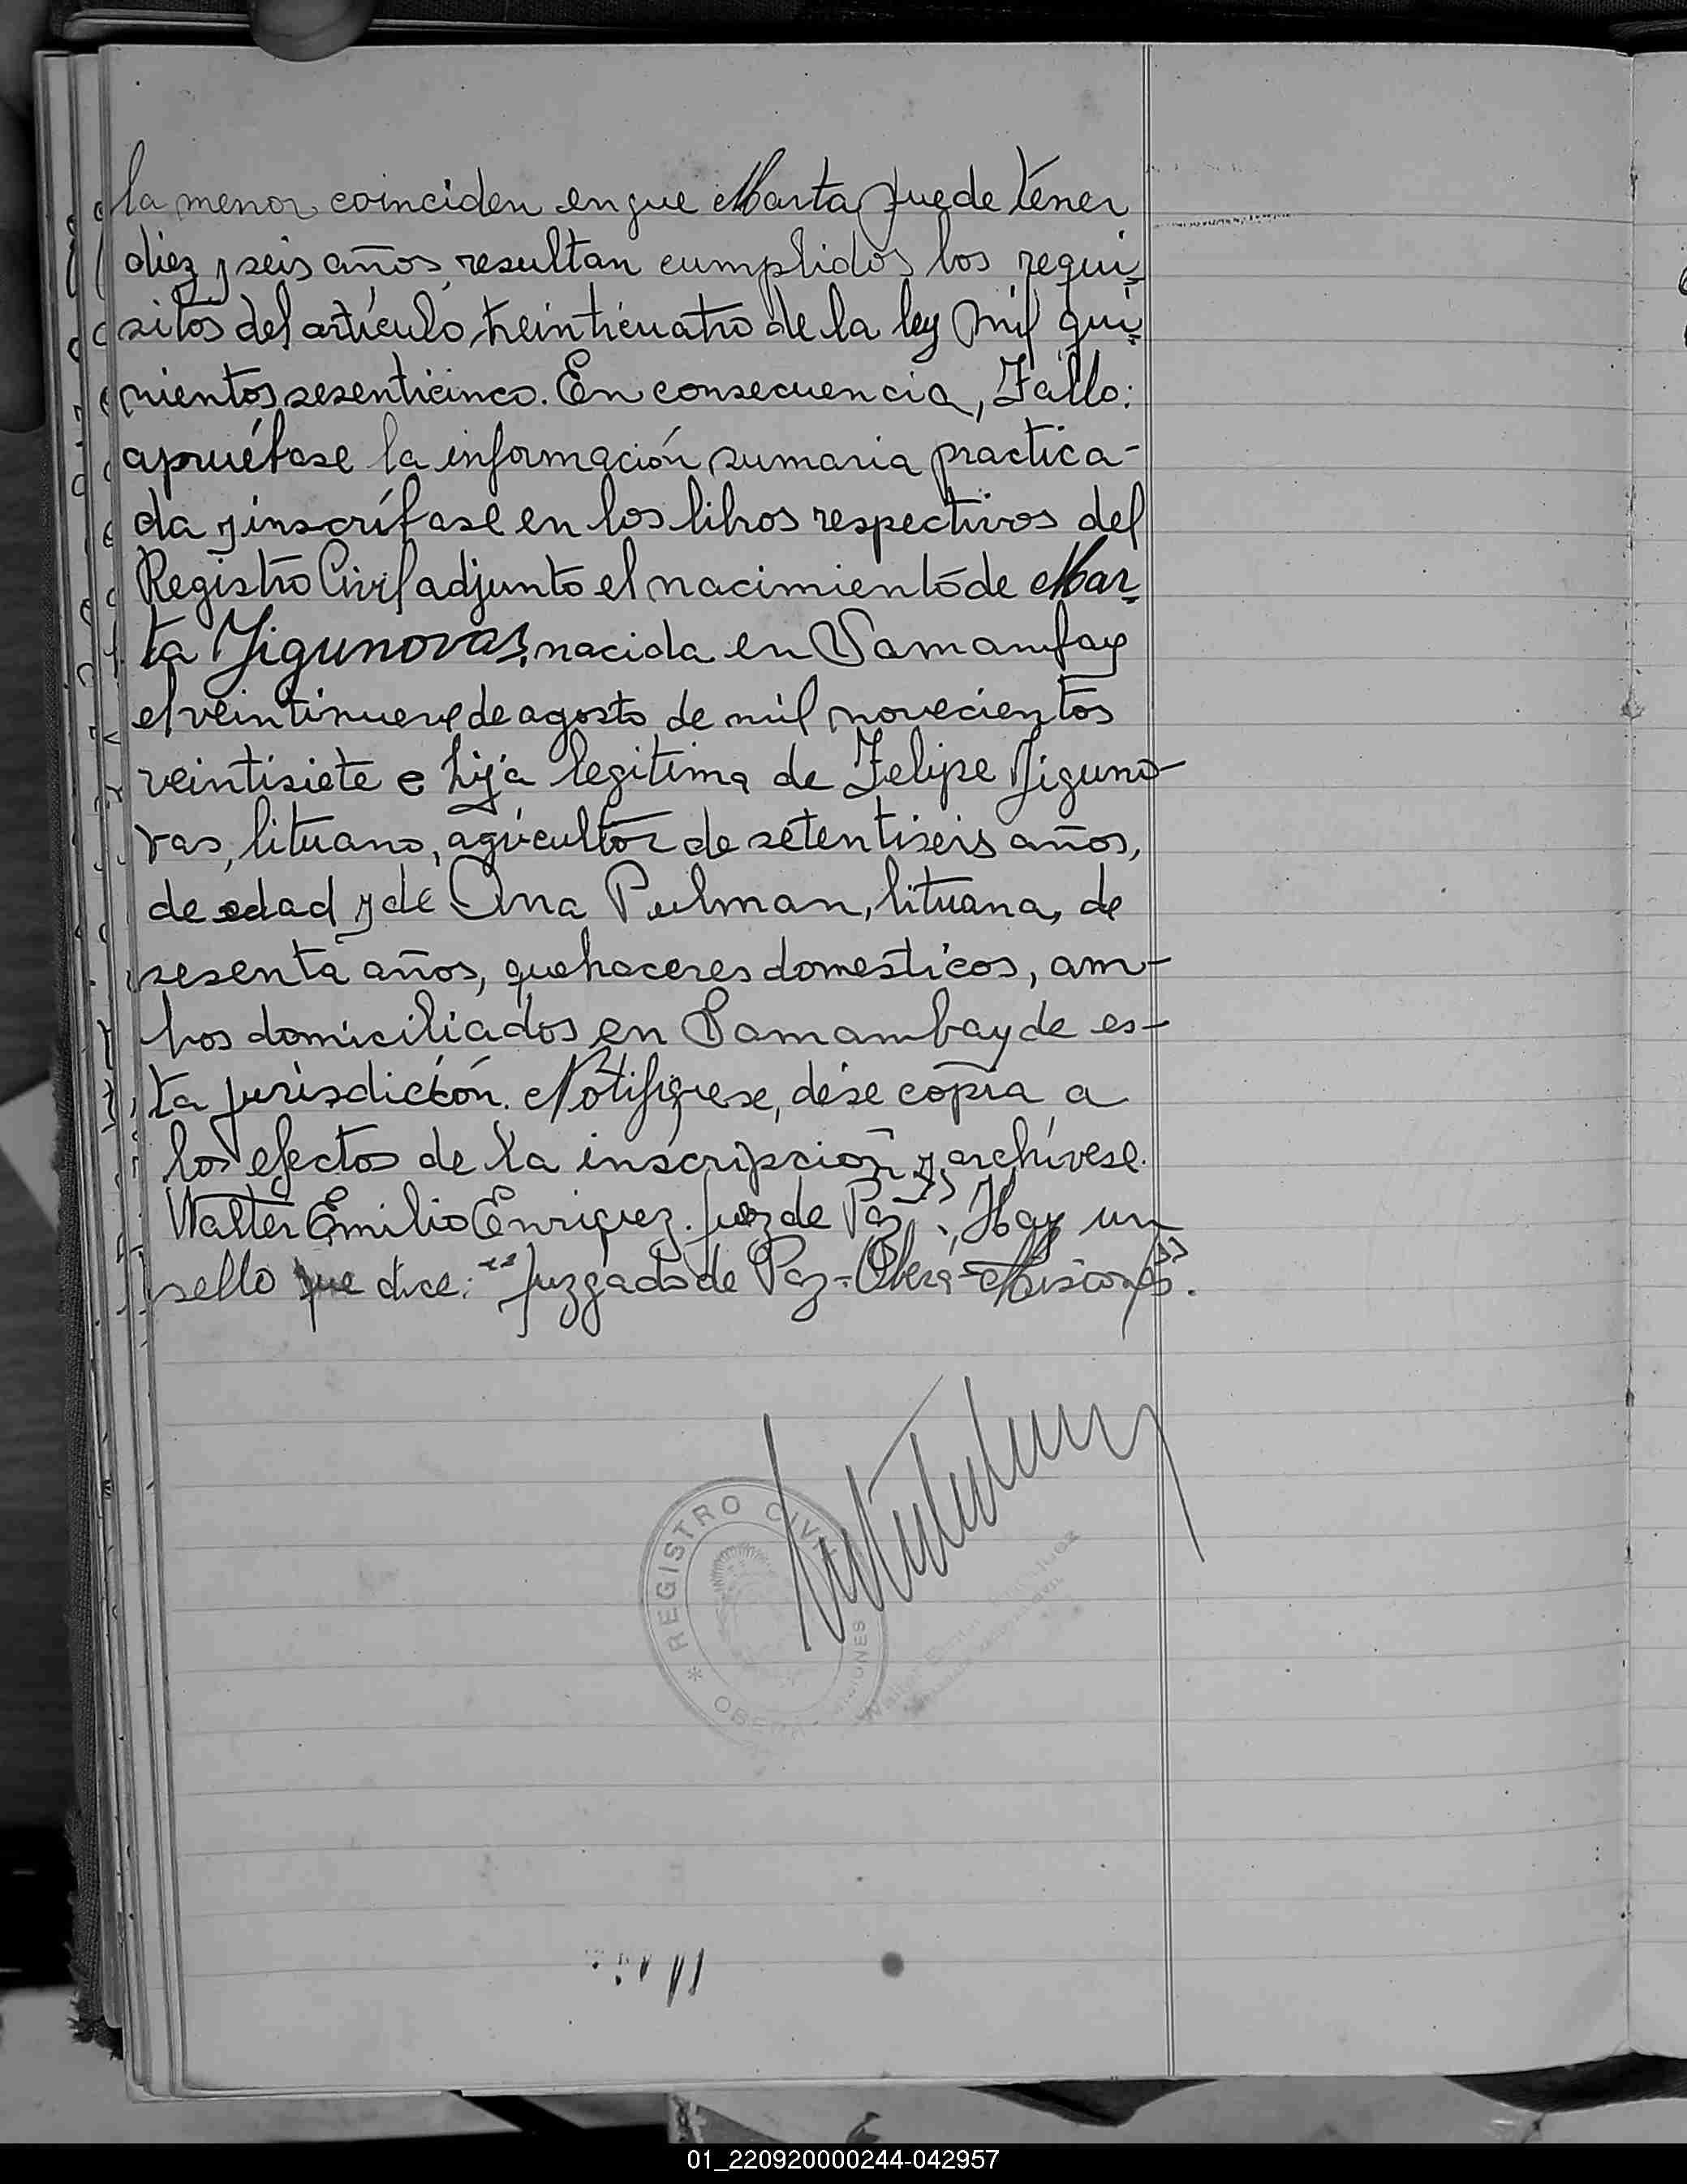 la menor coinciden en que Marta puede tener
diez y seis años, resultan cumplidos los requi-
sitos del artículo treinticuatro de la ley mil qui-
nientos sesenticinco. En consecuencia, Fallo:
apruébase la información sumaria practica-
da y inscríbase en los libros respectivos del
Registro Civil adjunto el nacimiento de Mar-
ta Jigunovas, nacida en Samambay
el veintinueve de agosto de mil novecientos
veintisiete e hija legitima de Felipe Jiguno-
vas, lituano, agricultor de setentiseis años,
de edad y de Ana Pulman, lituana, de
sesenta años, quehaceres domesticos, am-
bos domiciliados en Samambay de es-
ta jurisdicción. Notifíquese, dése copia a
los efectos de la inscripcion y archívese.
Walter Emilio Enriquez. Juez de Paz". Hay un
sello que dice: "Juzgado de Paz - Oberá - Misiones".
* REGISTRO CIVIL
OBERA - MISIONES
01_220920000244-042957